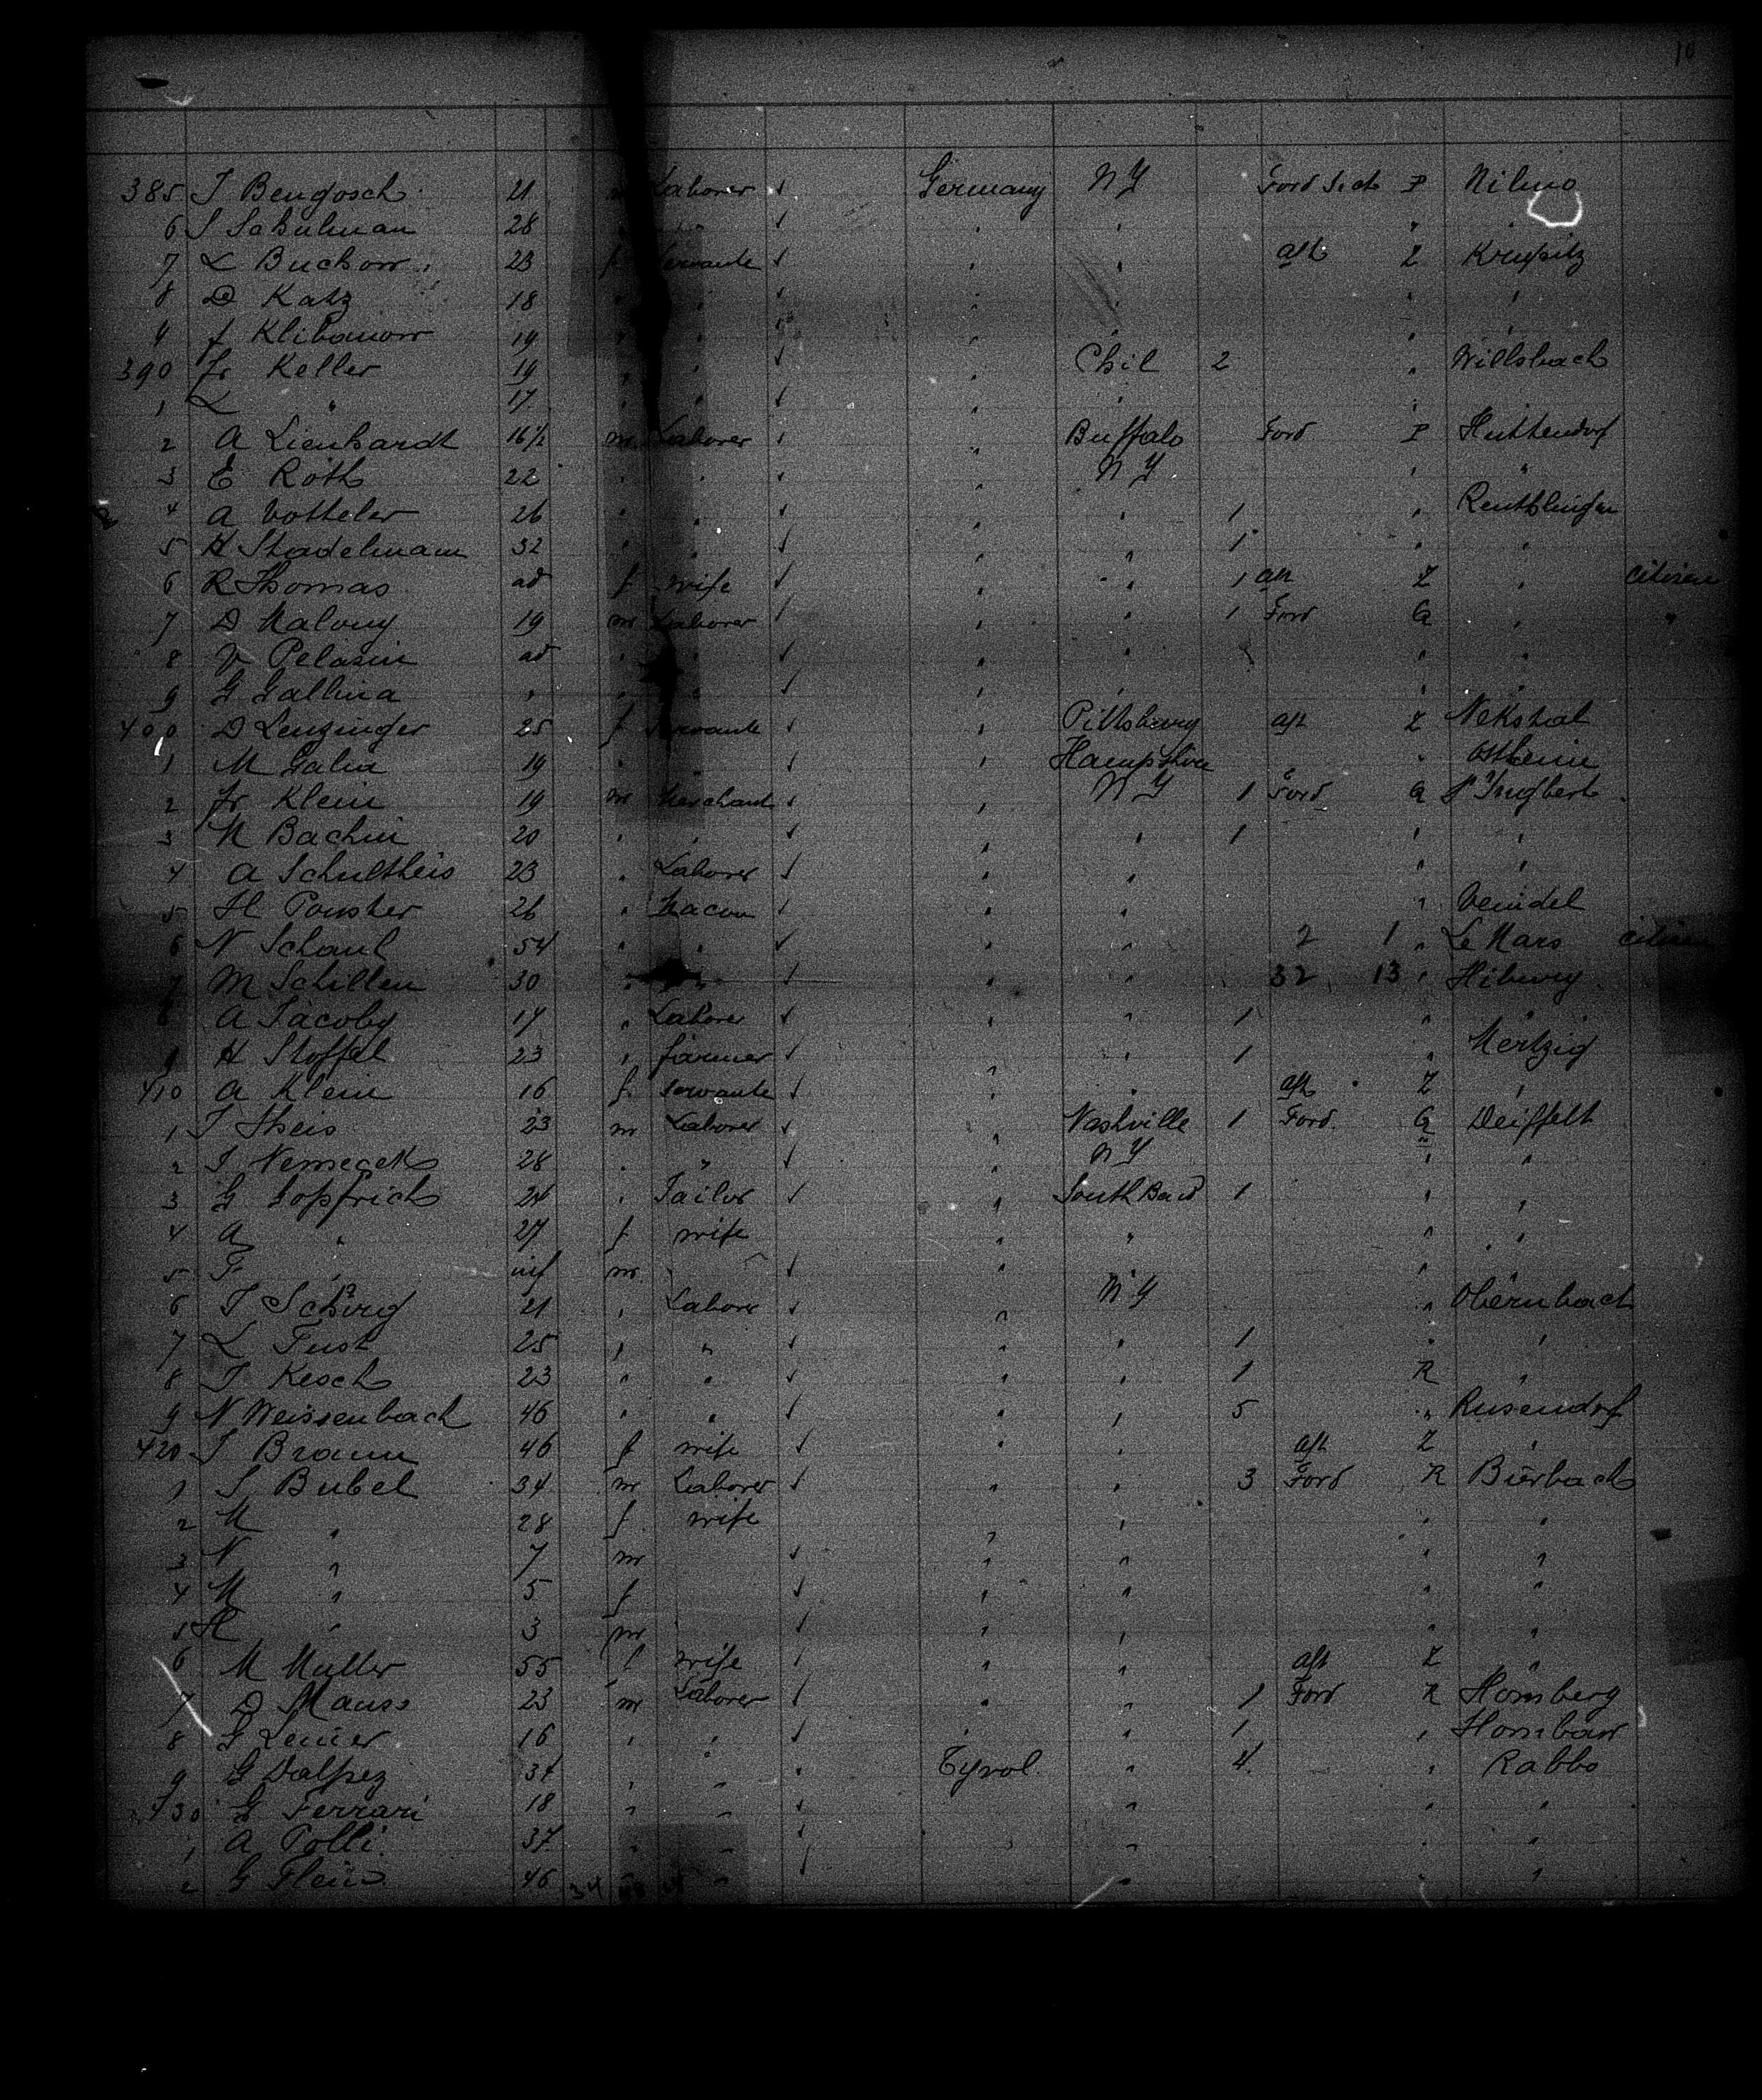 10
385 J Bengosch 21 m Laborer ✓ Germany N Y Ford Sect P Nilmo
6 S Schulman 28 " " ✓ " " "
7 L Buchow 23 f Servante ✓ " " aft Z Krupitz
8 D Katz 18 " " ✓ " " " "
9 J Klibanow 19 " " ✓ " " " "
390 Fr Keller 19 " " ✓ " Chil 2 " Willsbach
1 L " 17 " " ✓ " " "
2 A Lienhardt 16½ m Laborer ✓ " Buffalo Ford P Huttendorf
3 E Roth 22 " " ✓ " N Y " "
4 A Votteler 26 " " ✓ " " 1 " Reuthlingen
5 H Stadelmann 32 " " ✓ " " 1 " "
6 R Thomas ad f wife ✓ " " 1 aft Z " citizen
7 D Malony 19 m Laborer ✓ " " 1 Ford G " "
8 V Pelasin ad " " ✓ " " " "
9 G Gallina " " " ✓ " " " "
400 D Lenzinger 25 f Servante ✓ " Pittsburg aft Z Nekstal
1 M Galin 19 " " ✓ " Hampshire " " Ostheim
2 Fr Klein 19 m Merchant ✓ " N Y 1 Ford G St Ingbert
3 M Bachin 20 " " ✓ " " 1 " "
4 A Schultheis 23 " Laborer ✓ " " " "
5 H Ponsher 26 " Macon ✓ " " " Venidel
6 N Schaul 54 " " ✓ " " 2 1 " Le Mars citizen
7 M Schillen 30 " " ✓ " " 32 13 " Hiburg
8 A Jacoby 17 " Laborer ✓ " " 1 " "
9 H Stoffel 23 " farmer ✓ " " 1 " Mertzig
410 A Klein 16 f servante ✓ " " aft Z "
1 J Theis 23 m Laborer ✓ " Nashville 1 Ford G Deiffelt
2 J Nemecek 28 " " ✓ " N Y " "
3 G Gopfrich 24 " Tailor ✓ " South Bend 1 " "
4 A " 27 f wife " " " "
5 F " inf m ✓ " " "
6 J Schirg 21 " Laborer ✓ " N Y " Obernbach
7 L Fust 25 " " ✓ " " 1 " "
8 J Kesch 23 " " ✓ " " 1 R "
9 N Weissenbach 46 " " ✓ " " 5 " Rusendorf
420 J Braun 46 f wife ✓ " " aft Z "
1 S Bubel 34 m Laborer ✓ " " 3 Ford R Bierbach
2 M " 28 f wife " " " "
3 N " 7 m ✓ " " " "
4 M " 5 f ✓ " " " "
5 H " 3 m ✓ " " " "
6 M Muller 55 f wife ✓ " " aft Z "
7 D Mauss 23 m Laborer ✓ " " 1 Ford R Homberg
8 G Leuier 16 " " ✓ " " 1 " Hombarr
9 G Dalpez 34 " " " Tyrol " 4 " Rabbo
430 G Ferrari 18 " " ✓ " " "
1 A Polli 37 " " ✓ " " "
2 G Flein 46 " " ✓ " " "
34